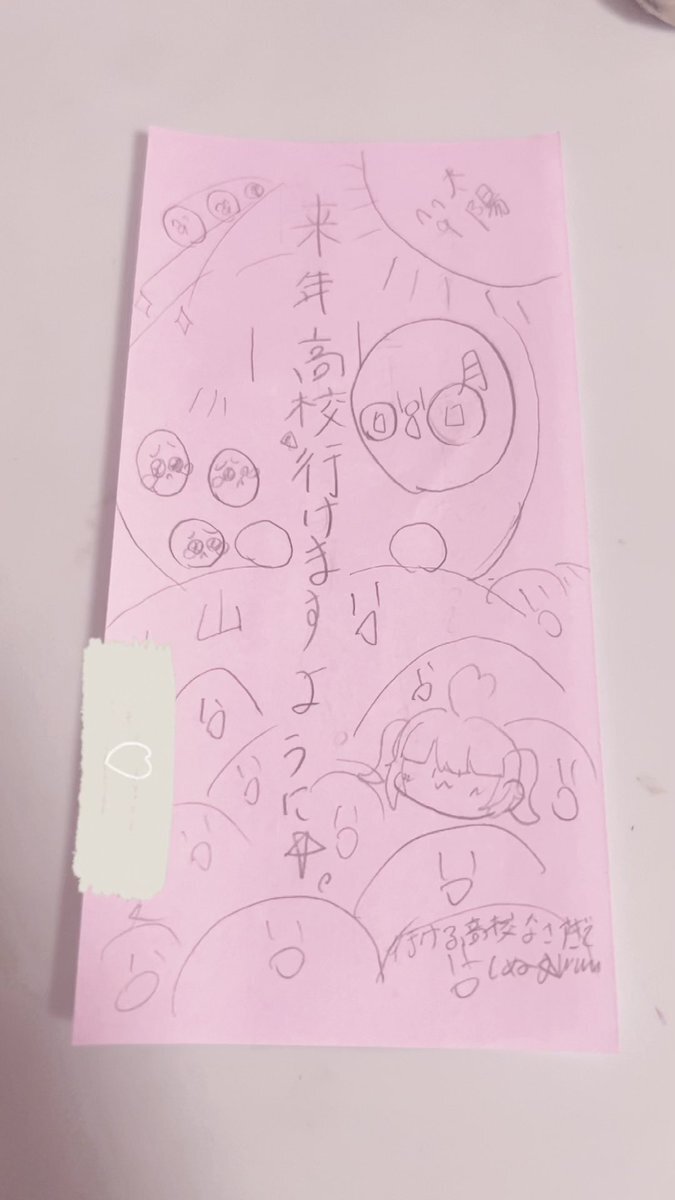 太陽
来年高校行けますように
月
山
行ける高校なさすぎて
しぬ